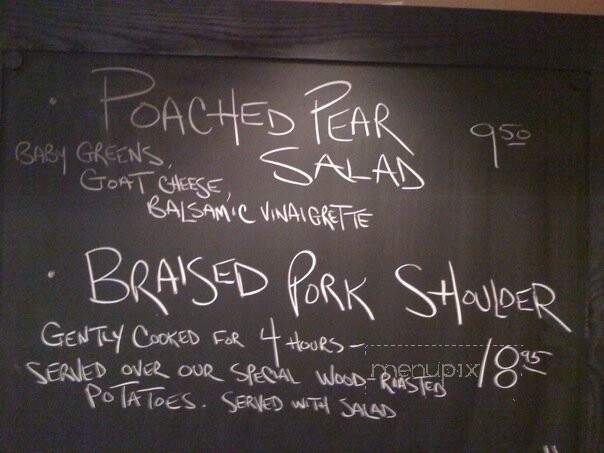 • POACHED PEAR
SALAD 9 50
BABY GREENS,
GOAT CHEESE,
BALSAMIC VINAIGRETTE
• BRAISED PORK SHOULDER
GENTLY COOKED FOR 4 HOURS –
SERVED OVER OUR SPECIAL WOOD ROASTED 18 95
POTATOES. SERVED WITH SALAD
menupix